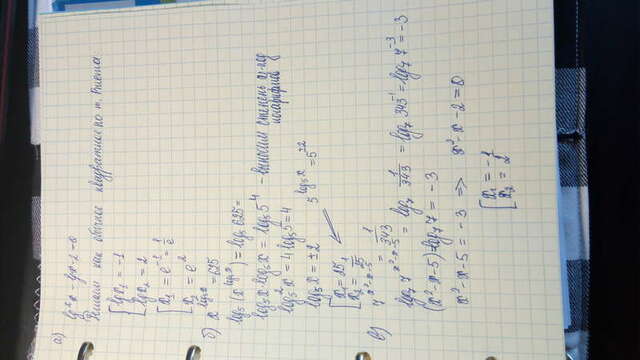 а) lg²x - lgx - 2 = 0
Решаем как обычное квадратное по т. Виета
[ lgx₁ = -1
lgx₂ = 2
[ x₁ = e⁻¹ = 1/e
x₂ = e²
б) x^(log₅x) = 625
log₅(x^(log₅x)) = log₅625 =
log₅x · log₅x = log₅5⁴ - выносим степень из-под логарифма
log₅²x = 4 log₅5 = 4
log₅x = ±2
5^(log₅x) = 5^(±2)
[ x₁ = 25
x₂ = 1/25
в) 7^(x²-x-5) = 1/343
log₇7^(x²-x-5) = log₇ 1/343 = log₇ 343⁻¹ = log₇ 7⁻³ = -3
(x²-x-5) log₇7 = -3
x²-x-5 = -3 => x²-x-2 = 0
[ x₁ = -1
x₂ = 2